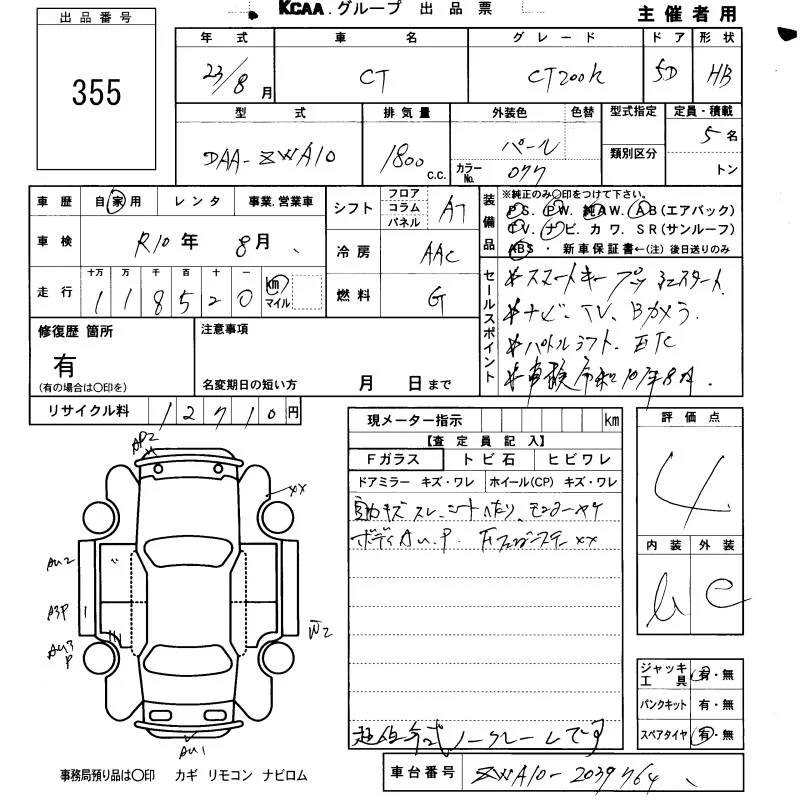 KCAA.グループ 出品票
主催者用
出品番号
355
年式 車名 グレード ドア 形状
23/8月 CT CT200h 5D HB
型式 排気量 外装色 色替 型式指定 定員・積載
DAA-ZWA10 1800 c.c. パール 類別区分 5名
カラーNo. 077 トン
車歴 自家用 レンタ 事業.営業車
車検 R10年 8月
走行 十万 万 千 百 十 一
1 1 8 5 2 0 km マイル
シフト フロア コラム パネル AT
冷房 AAC
燃料 G
装備品
※純正のみ○印をつけて下さい。
PS. PW. 純AW. AB(エアバック)
TV. ナビ. カワ. SR(サンルーフ)
ABS ・ 新車保証書←(注) 後日送りのみ
セールスポイント
*スマートキー プッシュスタート
*ナビ、TV、Bカメラ
*パドルシフト、ETC
*車検令和10年8月
修復歴 箇所
有
(有の場合は○印を)
注意事項
名変期日の短い方 月 日まで
リサイクル料 12710円
現メーター指示 km
【査定員記入】
Fガラス トビ石 ヒビワレ
ドアミラー キズ・ワレ ホイール(CP) キズ・ワレ
ボディAu.P. Fフェンダーステー××
評価点
4
内装 外装
C
ジャッキ工具 有・無
パンクキット 有・無
スペアタイヤ 有・無
AP2
××
AU2
A3P
AU3
P
W2
AU1
事務局預り品は○印 カギ リモコン ナビロム
車台番号 ZWA10-2039764